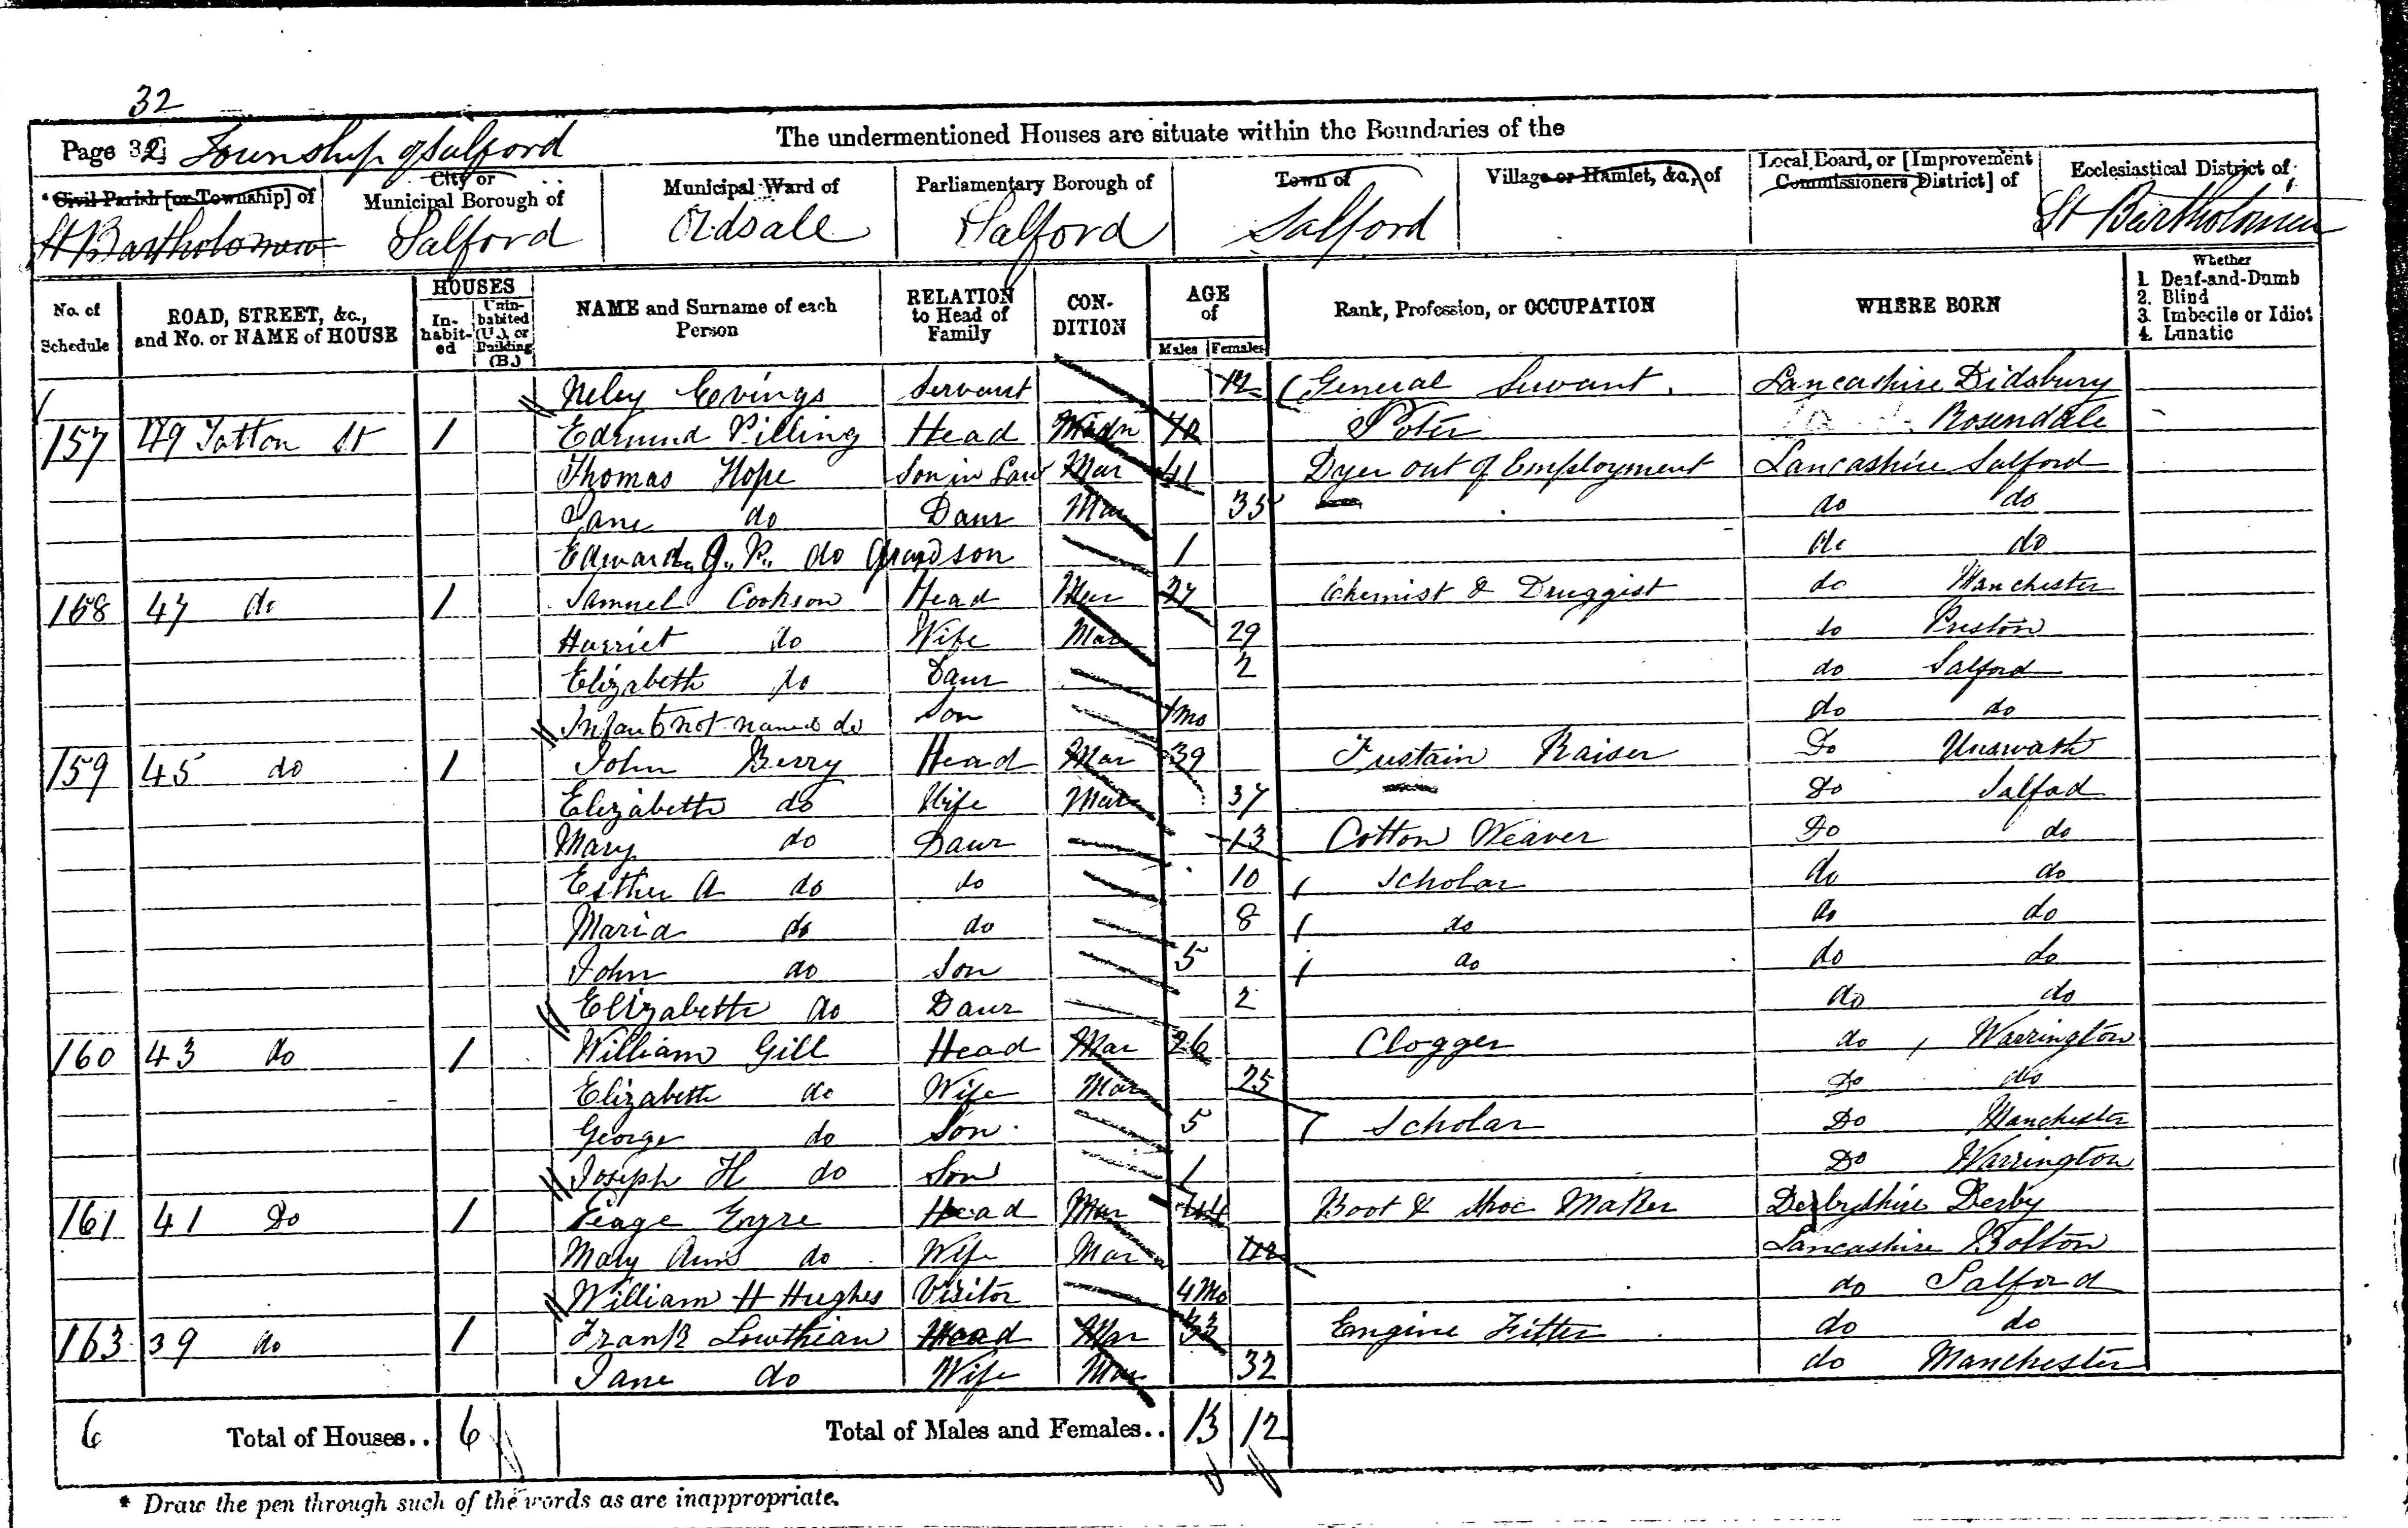 32
Page 32] Township of Salford The undermentioned Houses are situate within the Boundaries of the
* Civil Parish [or Township] of City or Municipal Borough of Municipal Ward of Parliamentary Borough of Town of Village or Hamlet, &c., of Local Board, or [Improvement Commissioners District] of Ecclesiastical District of
St Bartholomew Salford Ordsall Salford Salford St Bartholomew
No. of Schedule ROAD, STREET, &c., and No. or NAME of HOUSE HOUSES Inhabited Uninhabited (U.), or Building (B.) NAME and Surname of each Person RELATION to Head of Family CONDITION AGE of Males Females Rank, Profession, or OCCUPATION WHERE BORN Whether 1. Deaf-and-Dumb 2. Blind 3. Imbecile or Idiot 4. Lunatic
Servant 12 General Servant Lancashire Didsbury
157 49 Tatton St 1 Edmund Pilling Head Widr Rosendale
Thomas Hope Son in Law Mar 41 Dyer out of Employment Lancashire Salford
Jane do Daur Mar 35 do do
Edward J. P. do Grandson 1 do do
158 47 do 1 Samuel Cookson Head Mar 27 Chemist & Druggist do Manchester
Harriet do Wife Mar 29 do Preston
Elizabeth do Daur 2 do Salford
Infant not named do Son 1 mo do do
159 45 do 1 John Berry Head Mar 39 Fustain Raiser Do
Elizabeth do Wife Mar 37 Do Salfod
Mary do Daur 13 Cotton Weaver Do do
Esther A do do 10 Scholar do do
Maria do do 8 do do do
John do Son 5 do do do
Elizabeth do Daur 2 do do
160 43 do 1 William Gill Head Mar 26 Clogger do Warrington
Elizabeth do Wife Mar 25 Do do
George do Son 5 Scholar Do Manchester
Joseph H do Son 1 Do Warrington
161 41 Do 1 Eyre Head Mar 44 Boot & Shoe Maker Derbyshire Derby
Mary Ann do Wife Mar 42 Lancashire Bolton
William H Hughes Visitor 4 Mo do Salford
163 39 do 1 Frank Lowthian Head Mar 33 Engine Fitter do do
Jane do Wife Mar 32 do Manchester
6 Total of Houses.. 6 Total of Males and Females.. 13 12
* Draw the pen through such of the words as are inappropriate.